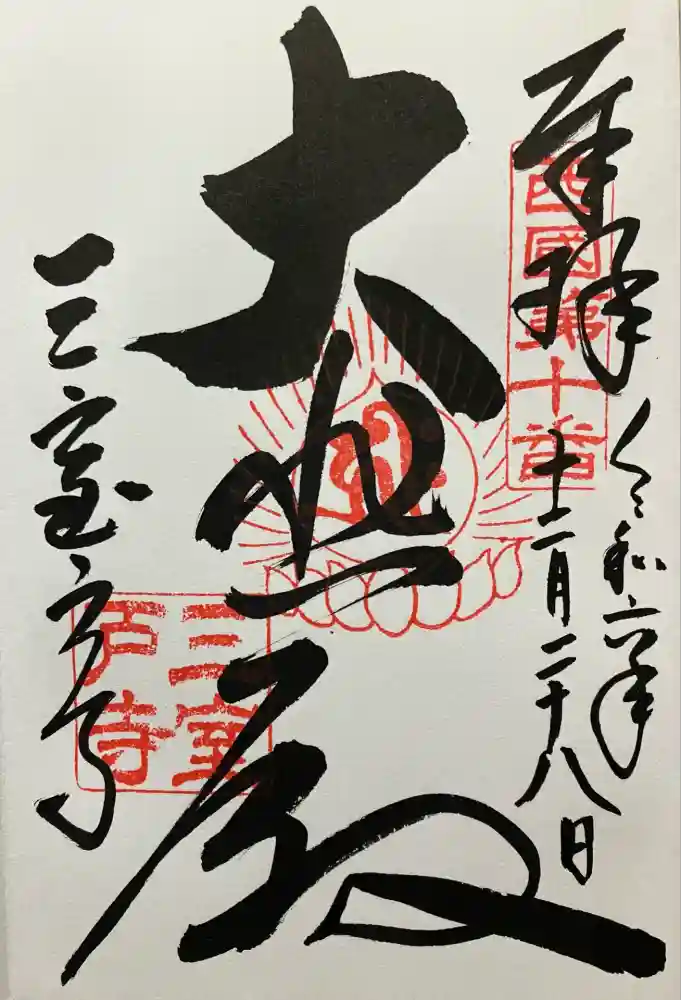 奉拝
西國第十番
令和六年
十二月二十八日
大悲殿
三室戸寺
三室
戸寺